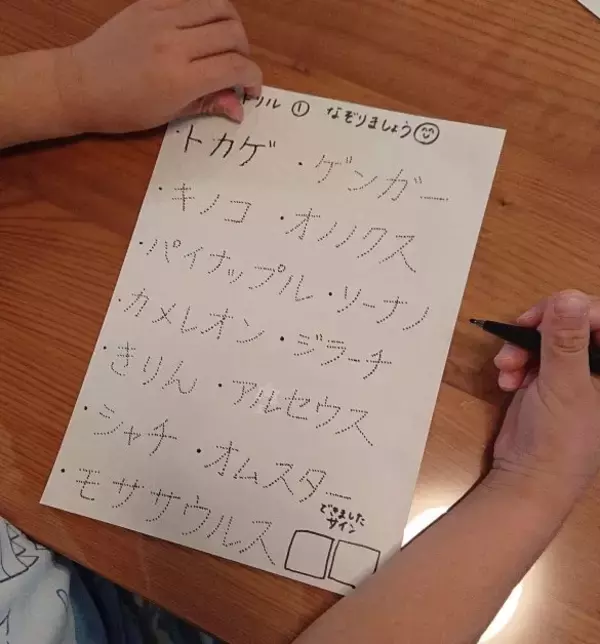 ドリル ① なぞりましょう
・トカゲ ・ゲンガー
・キノコ ・オノノクス
・パイナップル ・ソーナノ
・カメレオン ・ジラーチ
・きりん ・アルセウス
・シャチ ・オムスター
・モササウルス
できました
サイン